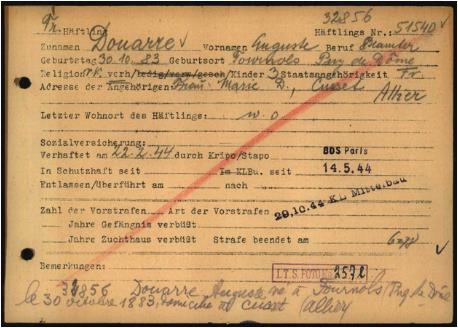 32856
Fr. Häftling Häftlings Nr.: 51540
Zunamen Douarre Vornamen Auguste Beruf Beamter
Geburtstag 30.10.83 Geburtsort Fournols Puy de Dôme
Religion r.k. verh/ledig/verw/gesch/Kinder 3 Staatsangehörigkeit Fr.
Adresse der Angehörigen: Frau: Marie D., Cusset
Allier
Letzter Wohnort des Häftlings: w.o
Sozialversicherung:
Verhaftet am 22.2.44 durch Kripo/Stapo BDS Paris
In Schutzhaft seit Im KLBu. seit 14.5.44
Entlassen/überführt am nach
29.10.44 KL Mittelbau
Zahl der Vorstrafen Art der Vorstrafen
Jahre Gefängnis verbüßt
Jahre Zuchthaus verbüßt Strafe beendet am
Bemerkungen:
I.T.S. FOTO 2572
32856 Douarre Auguste né à Fournols Puy de Dôme
le 30 octobre 1883, domicilié à Cusset (Allier)